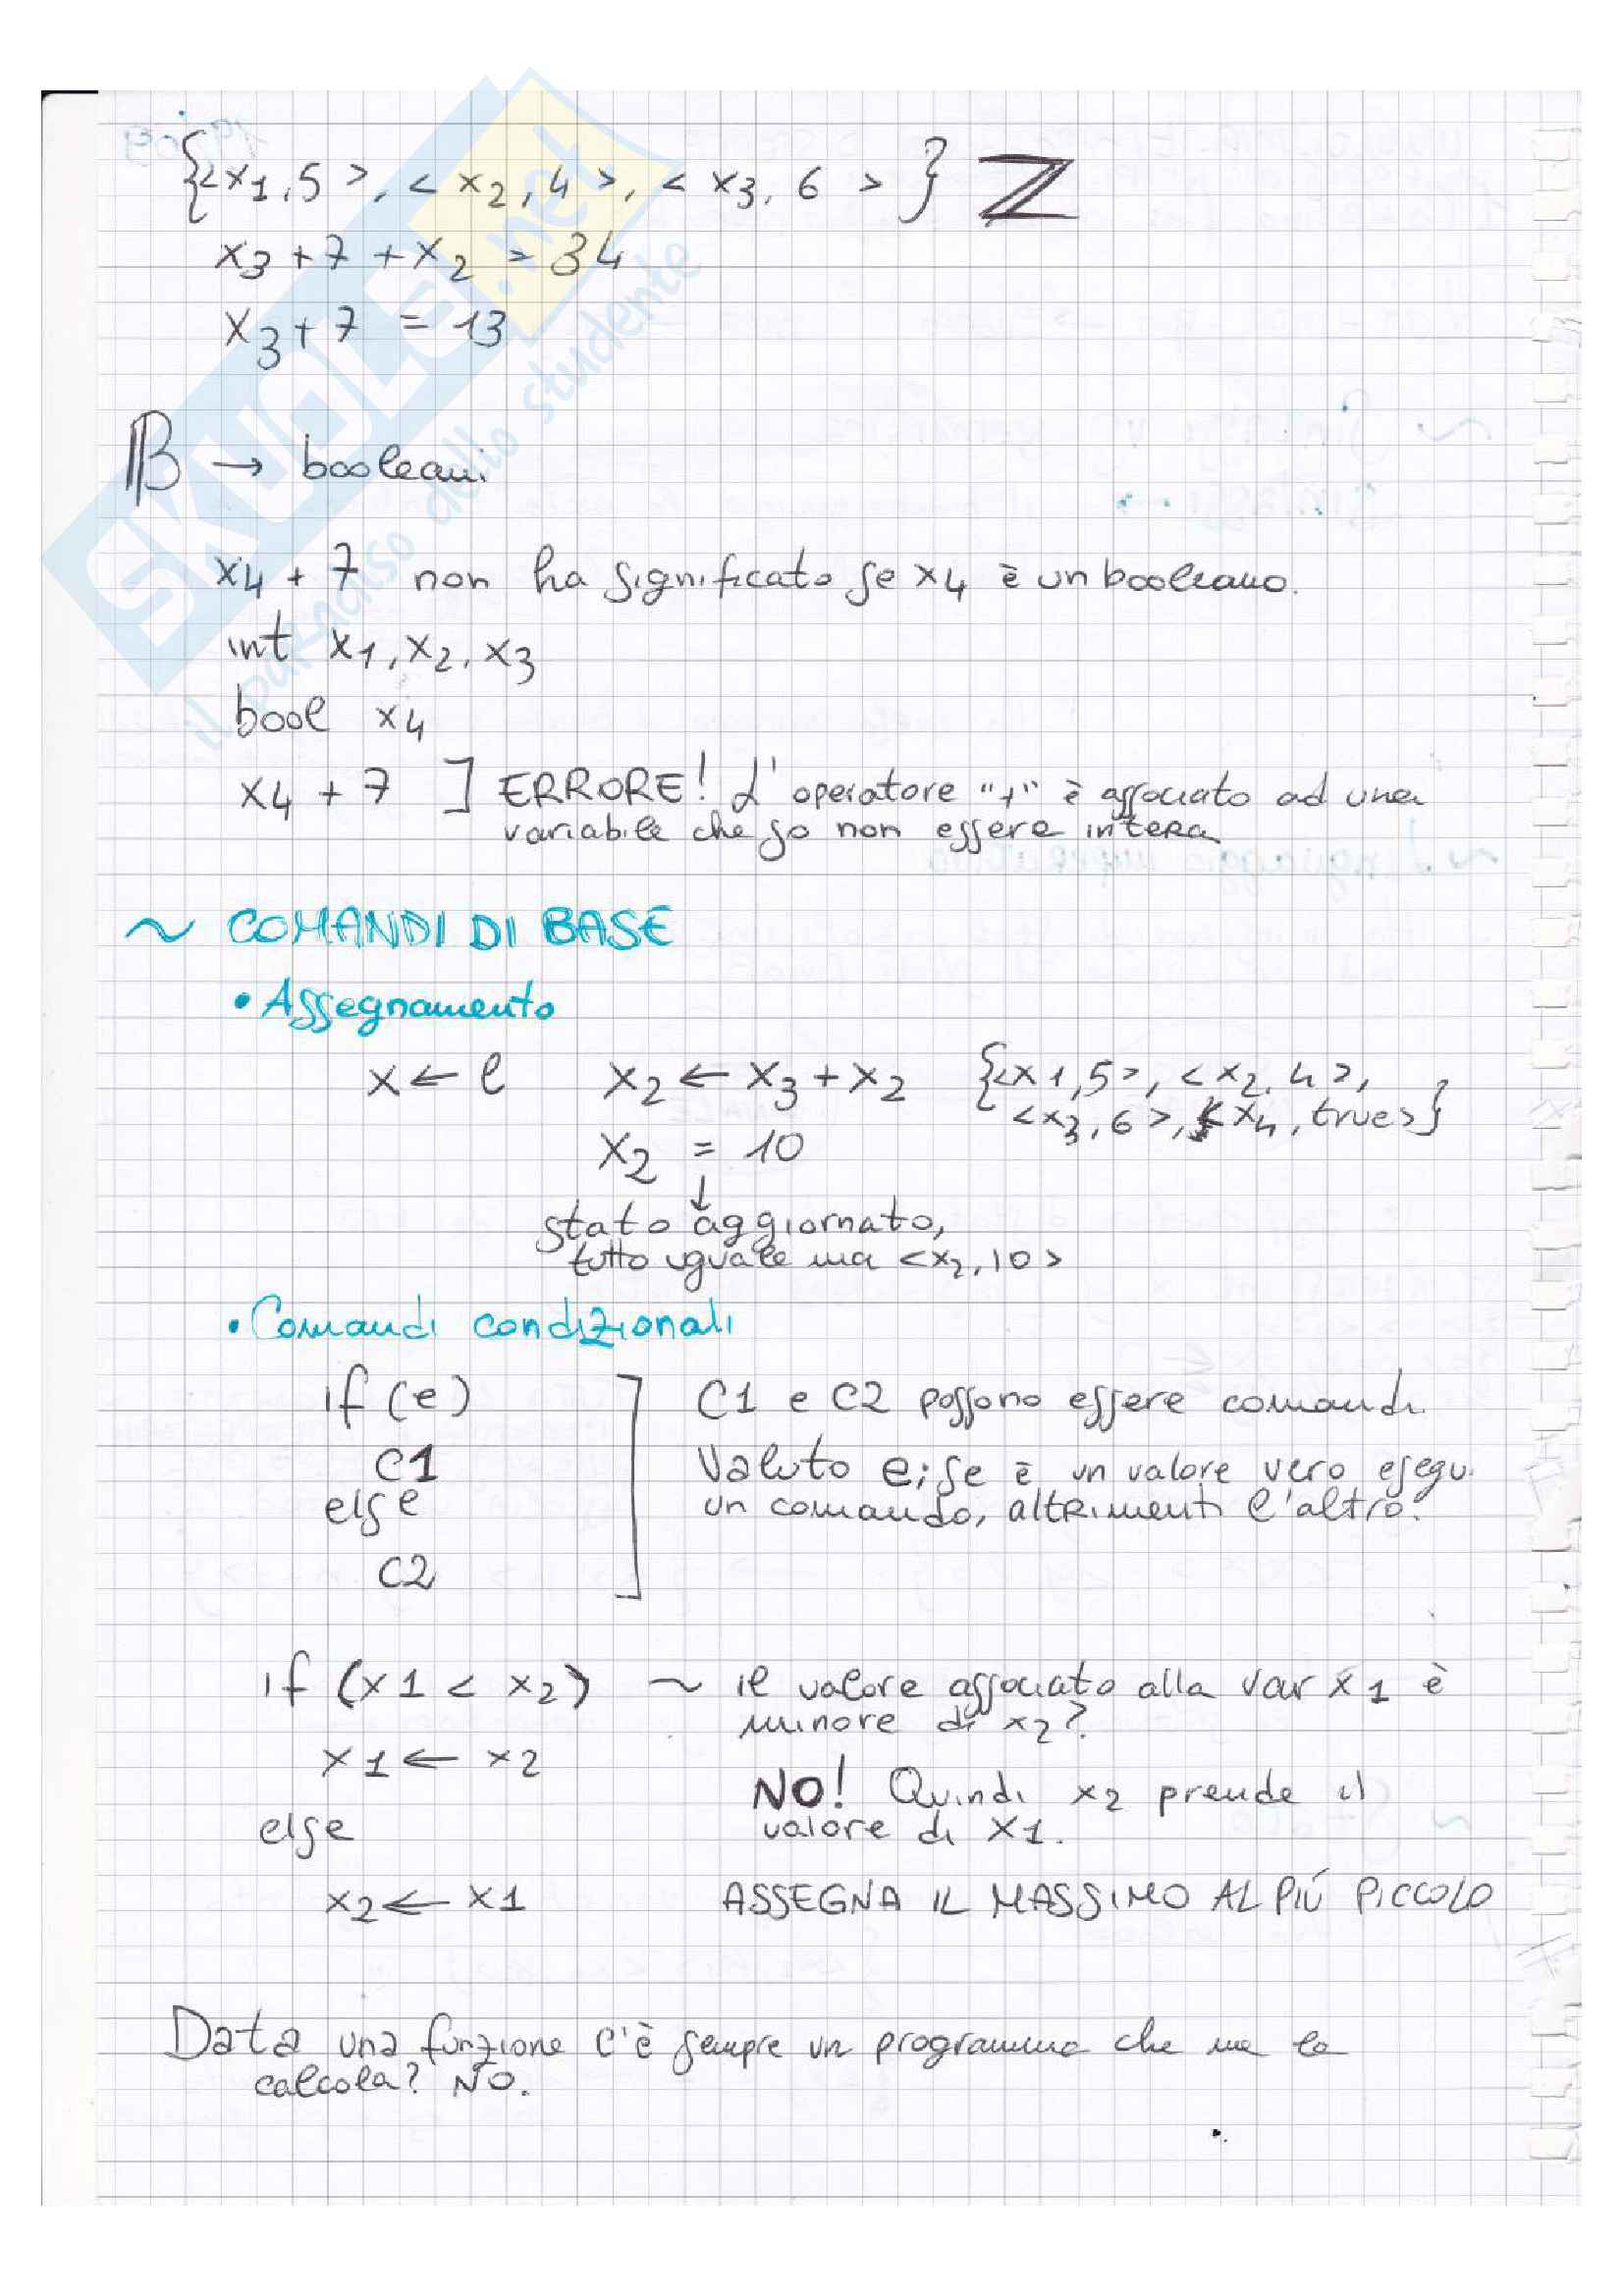 {<x1,5>,<x2,4>,<x3,6>} ℤ
x3+7+x2 = 34
x3+7 = 13
𝔹 → booleani
x4+7 non ha significato se x4 è un booleano.
int x1,x2,x3
bool x4
x4+7 ] ERRORE! L'operatore "+" è associato ad una
variabile che so non essere intera
~ COMANDI DI BASE
• Assegnamento
x ← e x2 ← x3+x2 {<x1,5>,<x2,4>,
<x3,6>,<x4,true>}
x2 = 10
↓
stato aggiornato,
tutto uguale ma <x2,10>
• Comandi condizionali
if (e) ] C1 e C2 possono essere comandi.
C1 Valuto e; se è un valore vero esegui
else un comando, altrimenti l'altro.
C2
if (x1 < x2) ~ il valore associato alla var x1 è
minore di x2?
x1 ← x2 NO! Quindi x2 prende il
else valore di x1.
x2 ← x1 ASSEGNA IL MASSIMO AL PIÚ PICCOLO
Data una funzione c'è sempre un programma che me la
calcola? NO.
SKUOLA.net
il paradiso dello studente